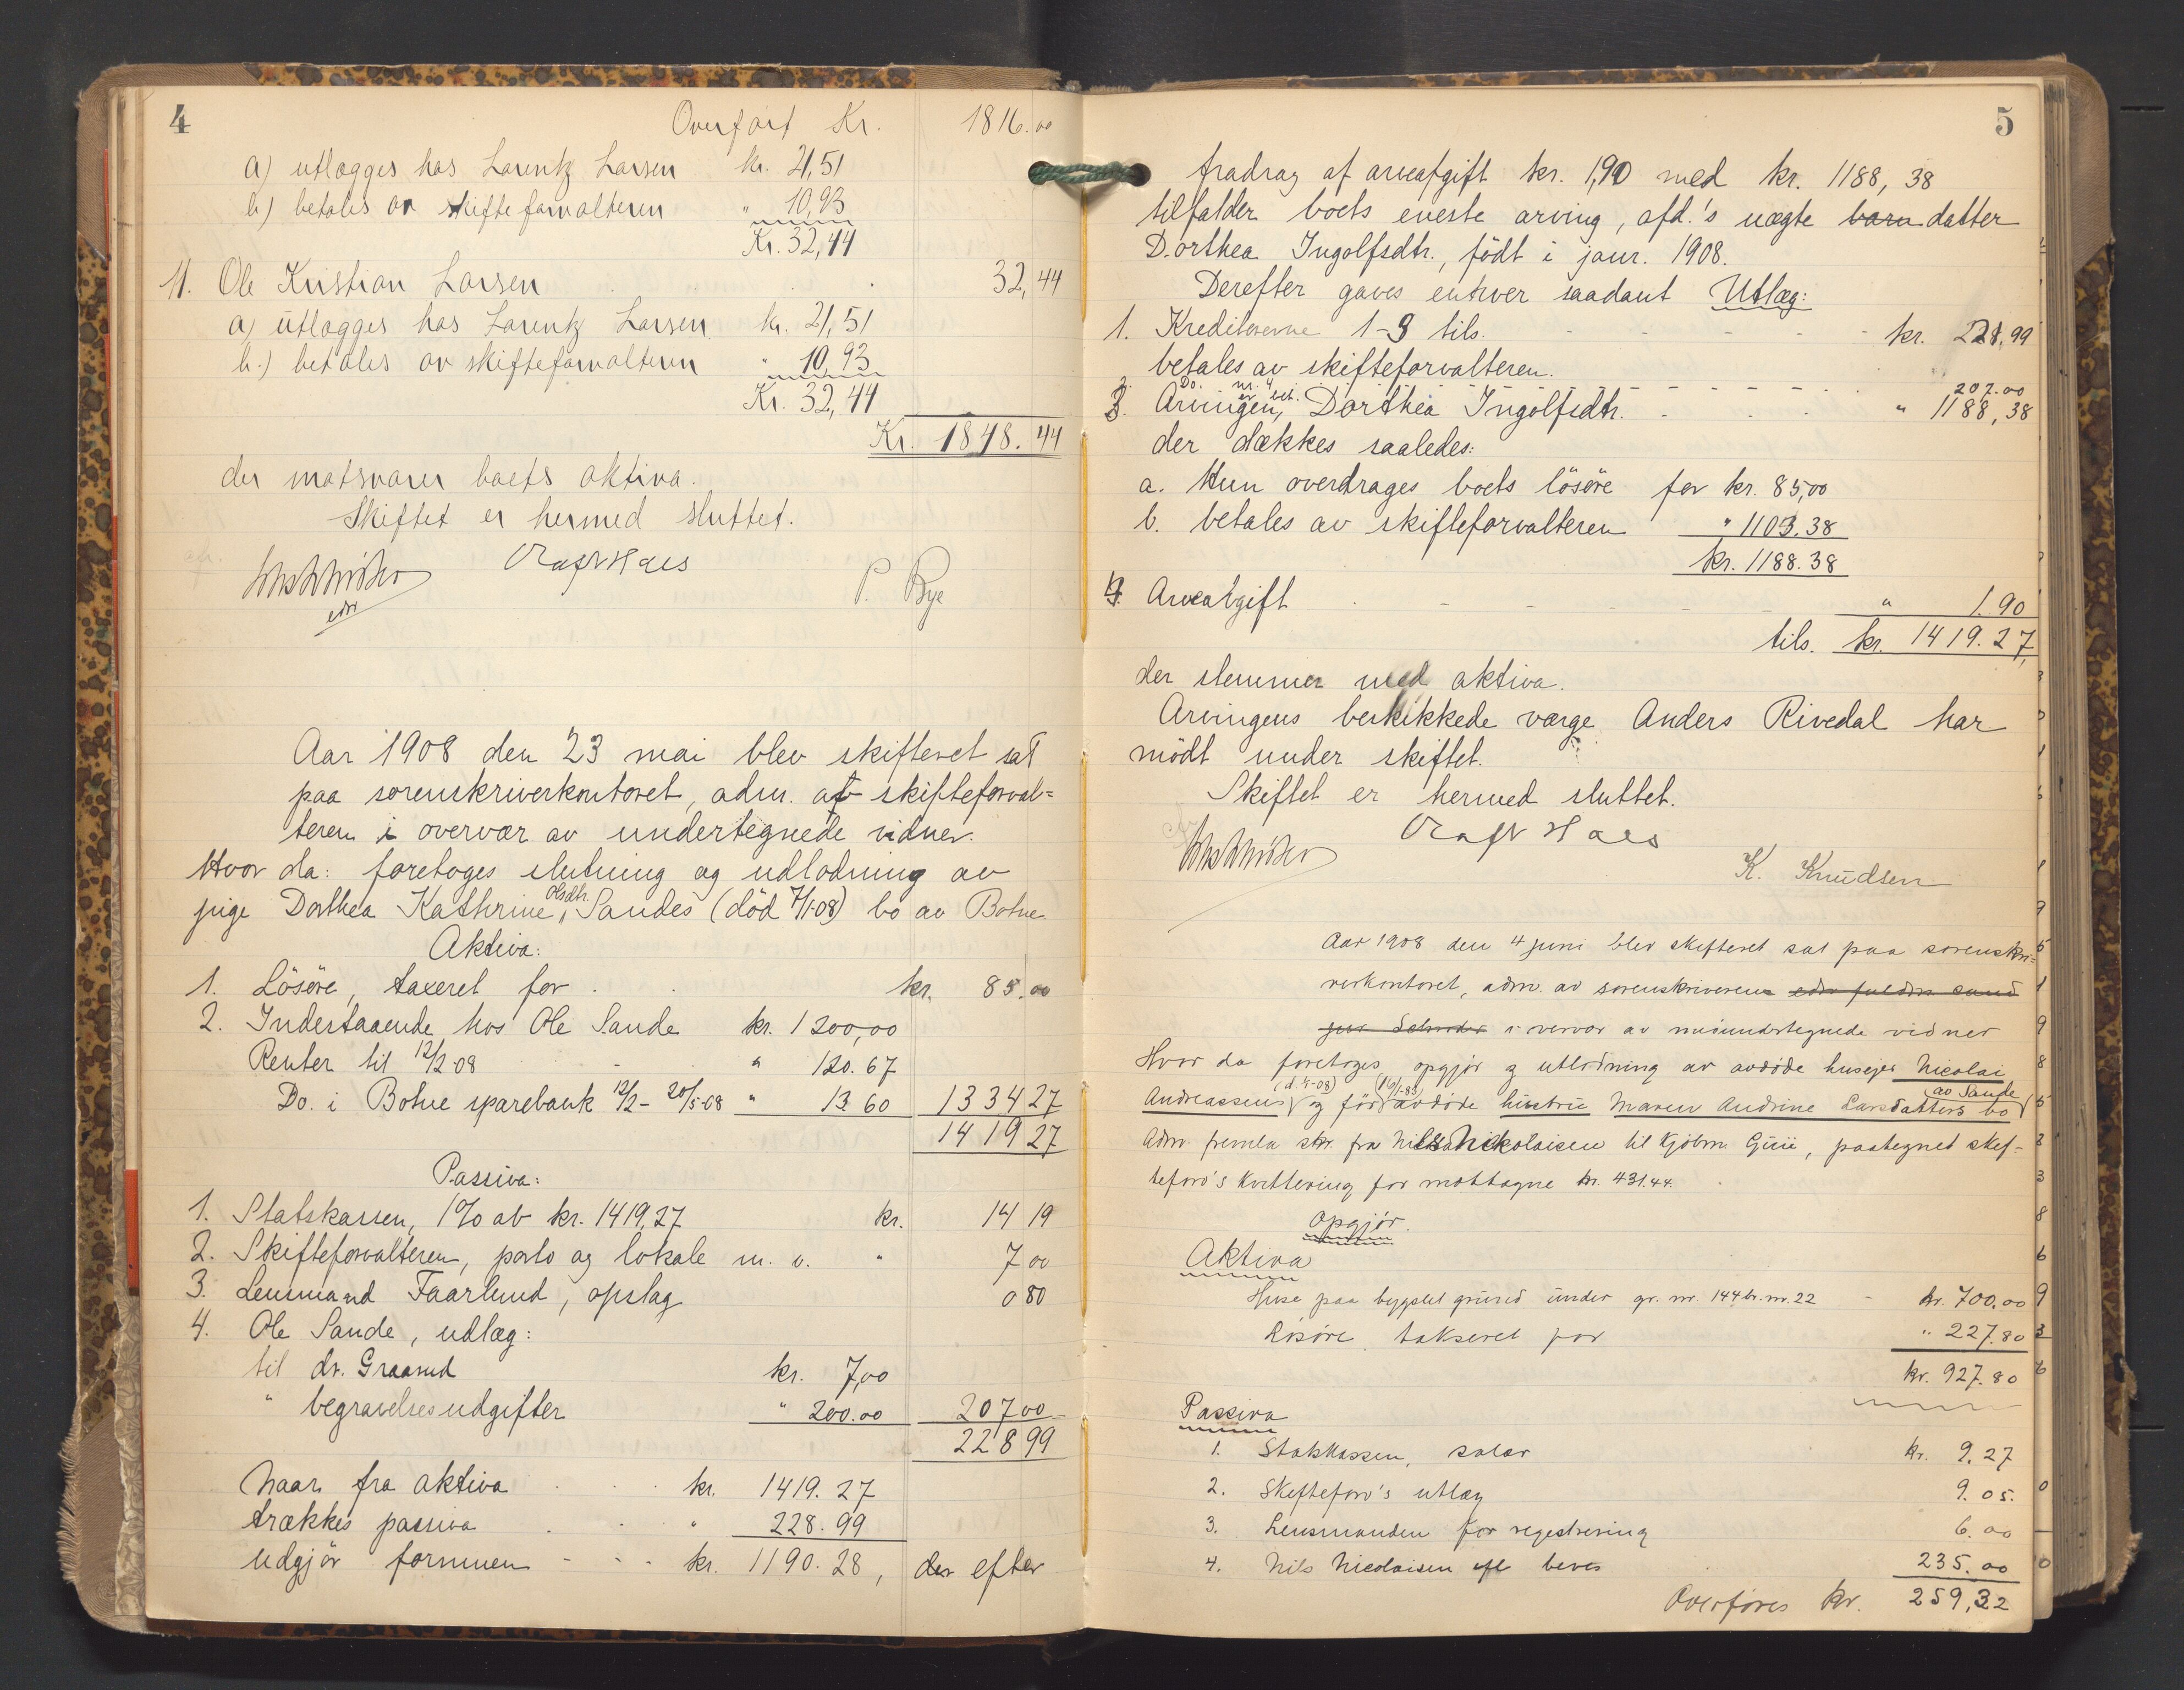 4
Overført Kr. 1816.00
a) utlægges hos Lorentz Larsen kr. 21,51
b) betales av skifteforvalteren " 10,93
Kr. 32,44
11. Ole Kristian Larsen 32,44
a) utlægges hos Lorentz Larsen kr. 21,51
b.) betales av skifteforvalteren " 10,93
Kr. 32,44
Kr. 1848.44
der motsvarer boets aktiva.
Skiftet er hermed sluttet.
P. Bye
Aar 1908 den 23 mai blev skifteret sat
paa sorenskriverkontoret, adm. af skifteforval=
teren i overvær av undertegnede vidner.
Hvor da: foretoges slutning og udlodning av
pige Dorthea Kathrine Olsdtr. Sandes (död 7/1-08) bo av Botne
Aktiva:
1. Lösöre, taxeret for kr. 85.00
2. Indestaaende hos Ole Sande kr. 1200,00
Renter til 12/2 08 " 120.67
Do. i Botne sparebank 12/2 - 20/5-08 " 13 60 1334 27
1419 27
Passiva:
1. Statskassen, 1% ab kr. 1419,27 kr. 14 19
2. Skifteforvalteren, porto og lokale m. v. " 7 00
3. Lensmand Faarlund, opslag 0 80
4. Ole Sande, udlæg:
til dr. Graarud kr. 7,00
" begravelsesudgifter " 200.00 207 00
228 99
Naar fra aktiva kr. 1419.27
trækkes passiva " 228.99
udgjör formuen kr. 1190.28, der efter
5
fradrag af arveafgift kr. 1,90 med kr. 1188,38
tilfalder boets eneste arving, afd.'s uægte barn datter
Dorthea Ingolfsdtr., födt i janr. 1908.
Derefter gaves enhver saadant Utlæg:
1. Kreditorerne 1-3 tils. kr. 221,99
betales av skifteforvalteren.
2. Do. nr. 4 er bet. 207.00
3. Arvingen, Dorthea Ingolfsdtr. " 1188,38
der dækkes saaledes:
a. Hun overdrages boets lösöre for kr. 85,00
b. betales av skifteforvalteren " 1103.38
kr. 1188.38
4. Arveafgift " 1.90
tils. kr. 1419.27
der stemmer med aktiva.
Arvingens beskikkede værge Anders Rivedal har
mödt under skiftet.
Skiftet er hermed sluttet.
K. Knudsen
Aar 1908 den 4 juni blev skifteret sat paa sorenskri=
verkontoret, adm. av sorenskriveren
i overvær av medundertegnede vidner
Hvor da foretoges opgjör og utlodning av avdöde huseier Nicolai
Andreassens og för avdöde hustru Maren Andrine Larsdatters bo av Sande
Adm. fremla skr. fra Nils Nickolaisen til Kjöbm. Guii, paategnet skif-
teforv's kvittering for mottagne kr. 431.44.
Opgjör.
Aktiva
Huse paa bygslet grund under gr. nr. 144 br. nr. 22 kr. 700.00
Lösöre takseret for " 227.80
kr. 927.80
Passiva
1. Statskassen, salær kr. 9.27
2. Skifteforv's utlæg 9.05.
3. Lensmanden for registrering 6.00
4. Nils Nicolaisen efl. bevis 235.00
Overföres kr. 259,32